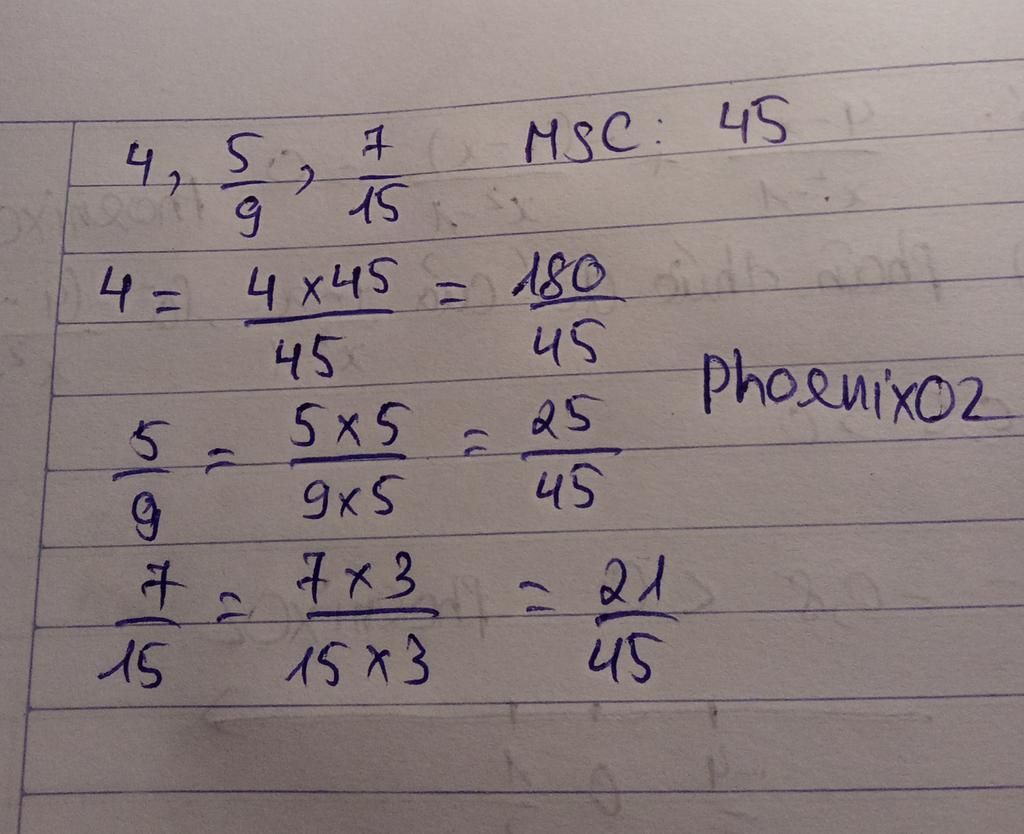 4, 5/9, 7/15 MSC: 45
4 = 4 x 45/45 = 180/45
Phoenix02
5/9 = 5 x 5/9 x 5 = 25/45
7/15 = 7 x 3/15 x 3 = 21/45